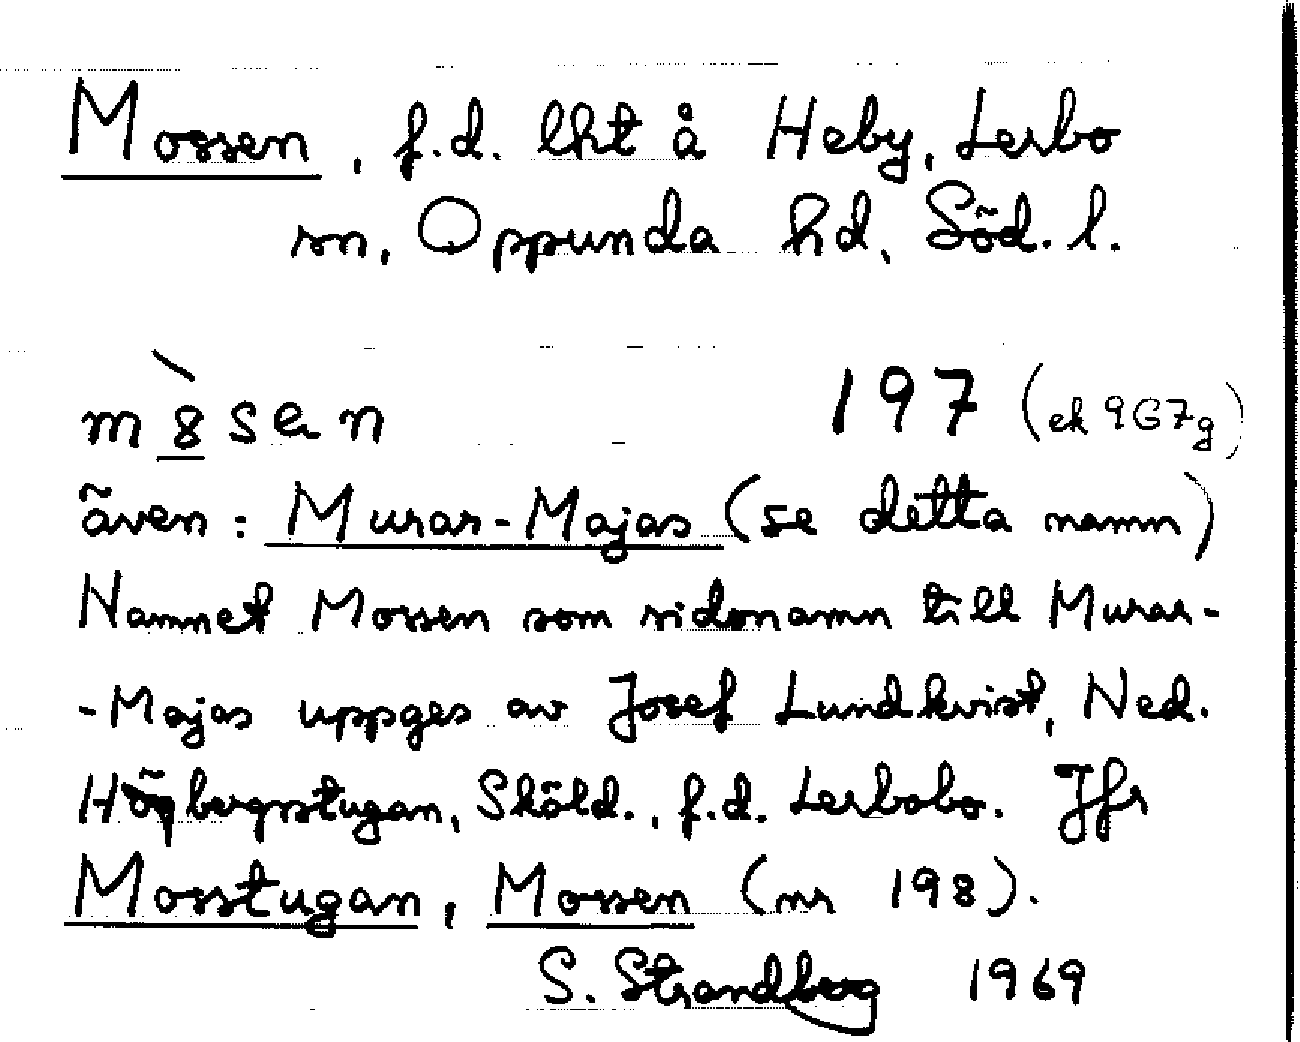 Mossen, f.d. lht å Heby, Lerbo
sn, Oppunda hd, Söd. l.
m8̀sen 197 (ek 9G7g)
även: Murar-Majas (se detta namn)
Namnet Mossen som sidonamn till Murar-
-Majas uppges av Josef Lundkvist, Ned.
Högbergsstugan, Sköld., f.d. Lerbobo. Jfr
Mosstugan, Mossen (nr 198).
S. Strandberg 1969